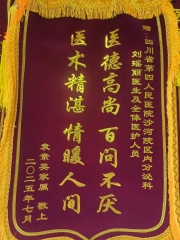 赠:四川省第四人民医院沙河院区内分泌科
刘瑶丽医生及全体医护人员
医德高尚百问不厌
医术精湛情暖人间
袁素英家属 敬上
二〇二五年七月